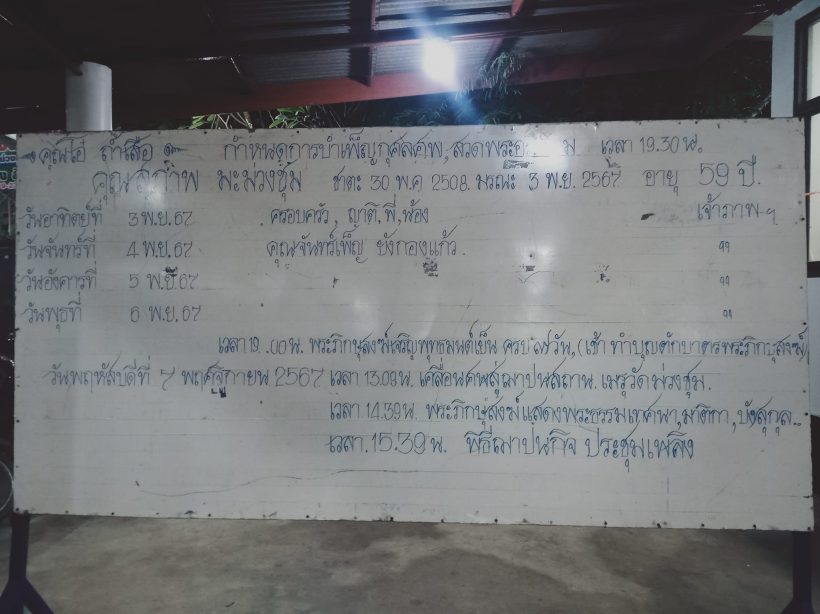 คุณโอ๋ ถ้ำเสือ กำหนดการบำเพ็ญกุศลศพ, สวดพระอ ม เวลา 19.30 น.
คุณสุภาพ มะม่วงชุ่ม ชาตะ 30 พ.ค. 2508. มรณะ 3 พ.ย. 2567 อายุ 59 ปี.
วันอาทิตย์ที่ 3 พ.ย. 67 ครอบครัว, ญาติ, พี่, น้อง เจ้าภาพฯ
วันจันทร์ที่ 4 พ.ย. 67 คุณจันทร์เพ็ญ ยังกองแก้ว. "
วันอังคารที่ 5 พ.ย. 67 "
วันพุธที่ 6 พ.ย. 67 "
พระภิกษุสงฆ์เจริญพุทธมนต์เย็น ครบ ๗ วัน, (เช้า ทำบุญตักบาตรพระภิกษุสงฆ์)
วันพฤหัสบดีที่ 7 พฤศจิกายน 2567 เวลา 13.09 น. เคลื่อนศพสู่ฌาปนสถาน. เมรุวัดม่วงชุม.
เวลา 14.39 น. พระภิกษุสงฆ์แสดงพระธรรมเทศนา, มาติกา, บังสุกุล..
เวลา. 15.39 น. พิธีฌาปนกิจ ประชุมเพลิง